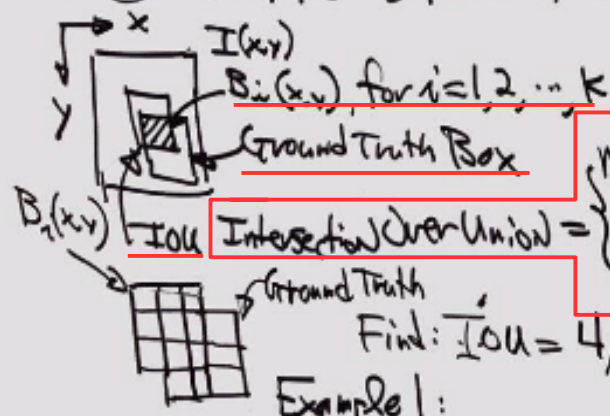 x
I(x,y)
y
Bi(x,y), for i=1,2, ..., K
Ground Truth Box
Bi(x,y)
IOU Intersection Over Union =
Ground Truth
Find: IOU = 4
Example 1: